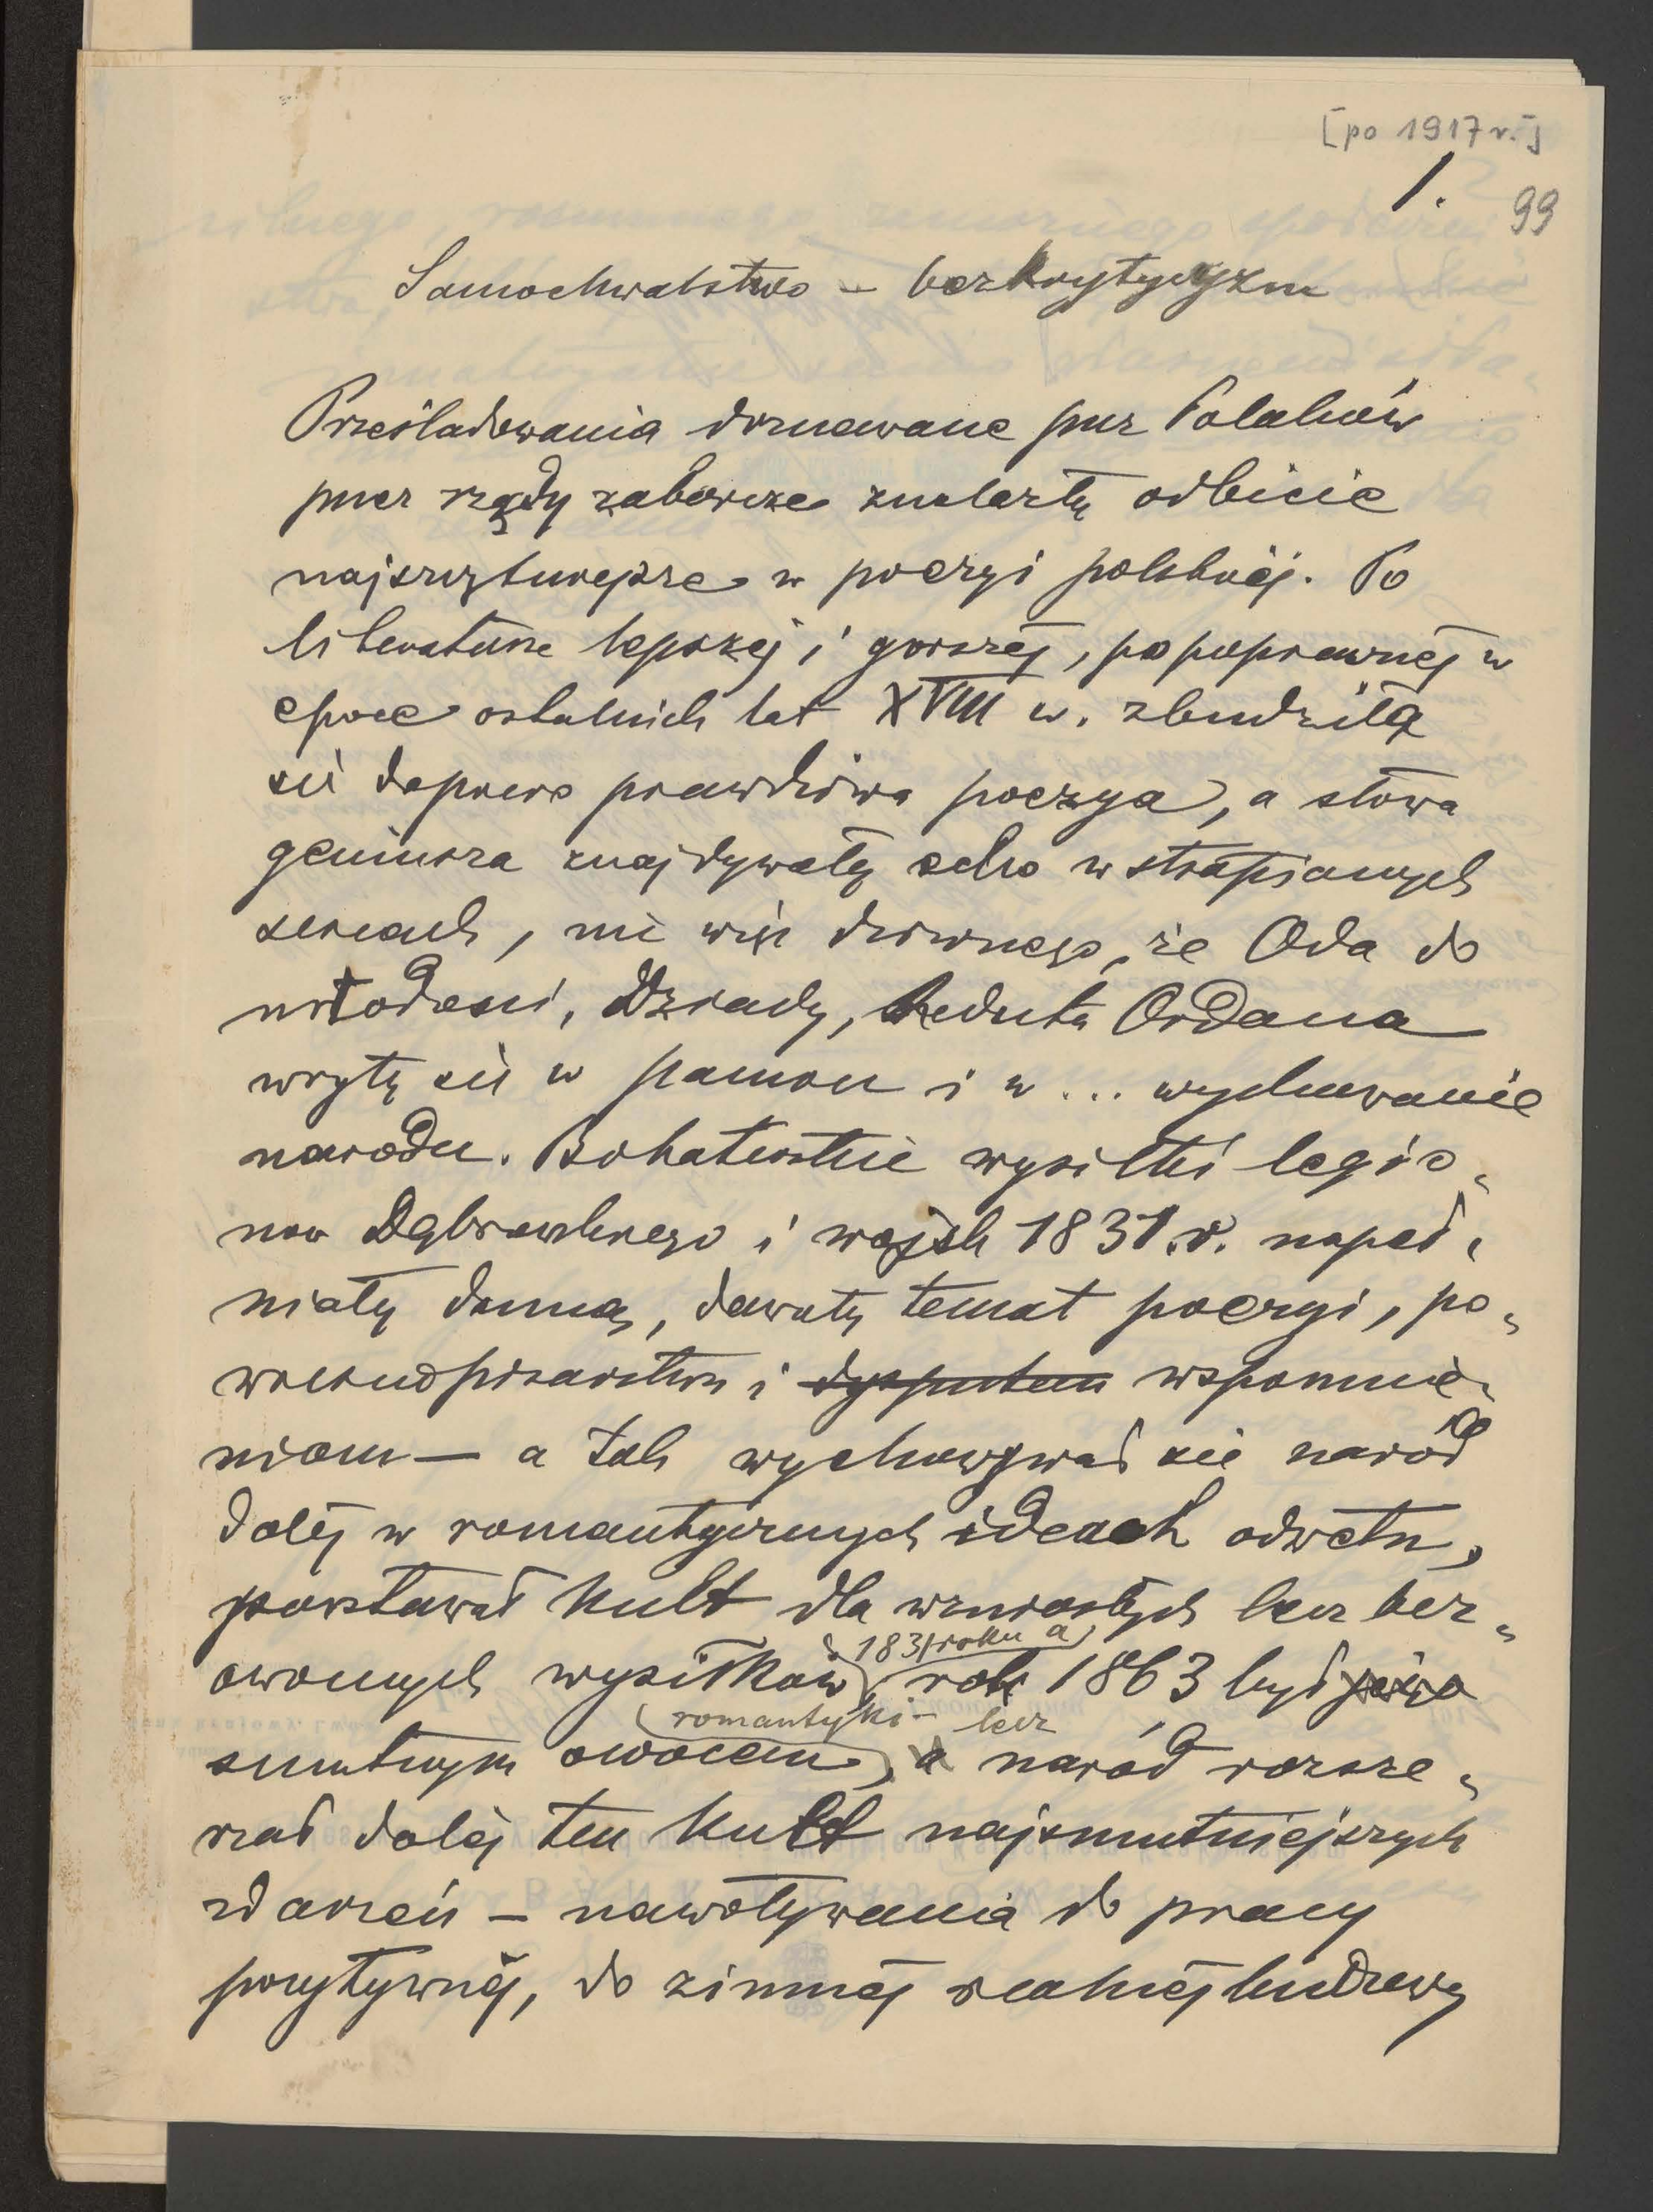 [po 1917 r.]
1.
99
Samochwalstwo – bezkrytycyzm
Prześladowania doznawane przez Polaków
przez rządy zaborcze znalazły odbicie
najszczytniejsze w poezyi polskiej. Po
literaturze lepszej i gorszej, po poprawnej w
epoce ostatnich lat XVIII w. zbudziła
się dopiero prawdziwa poezya, a słowa
geniusza znajdywały echo w strapionych
sercach, nic więc dziwnego, że Oda do
młodości, Dziady, Reduta Ordona
wryły się w pamięć i w ... wychowanie
narodu. Bohaterskie wysiłki legio-
nów Dąbrowskiego i wojsk 1831 r. napeł-
niały dumą, dawały temat poezyi, po-
wieściopisarstwu i wspomnie-
niom – a tak wychowywał się naród
dalej w romantycznych ideach odwetu,
powstawał kult dla wzniosłych lecz bez-
1831 roku a
owocnych wysiłków, rok 1863 był
romantyki – lecz
smutnym owocem, a naród rozsze-
rzał dalej ten kult najsmutniejszych
zdarzeń – nawoływania do pracy
pozytywnej, do zimnej realnej budowy